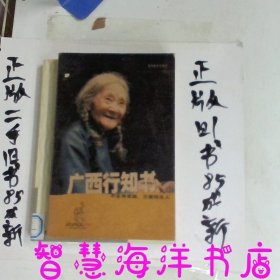 正版二手旧书85成新
广西行知书
正版旧书85成新
智慧海洋书店